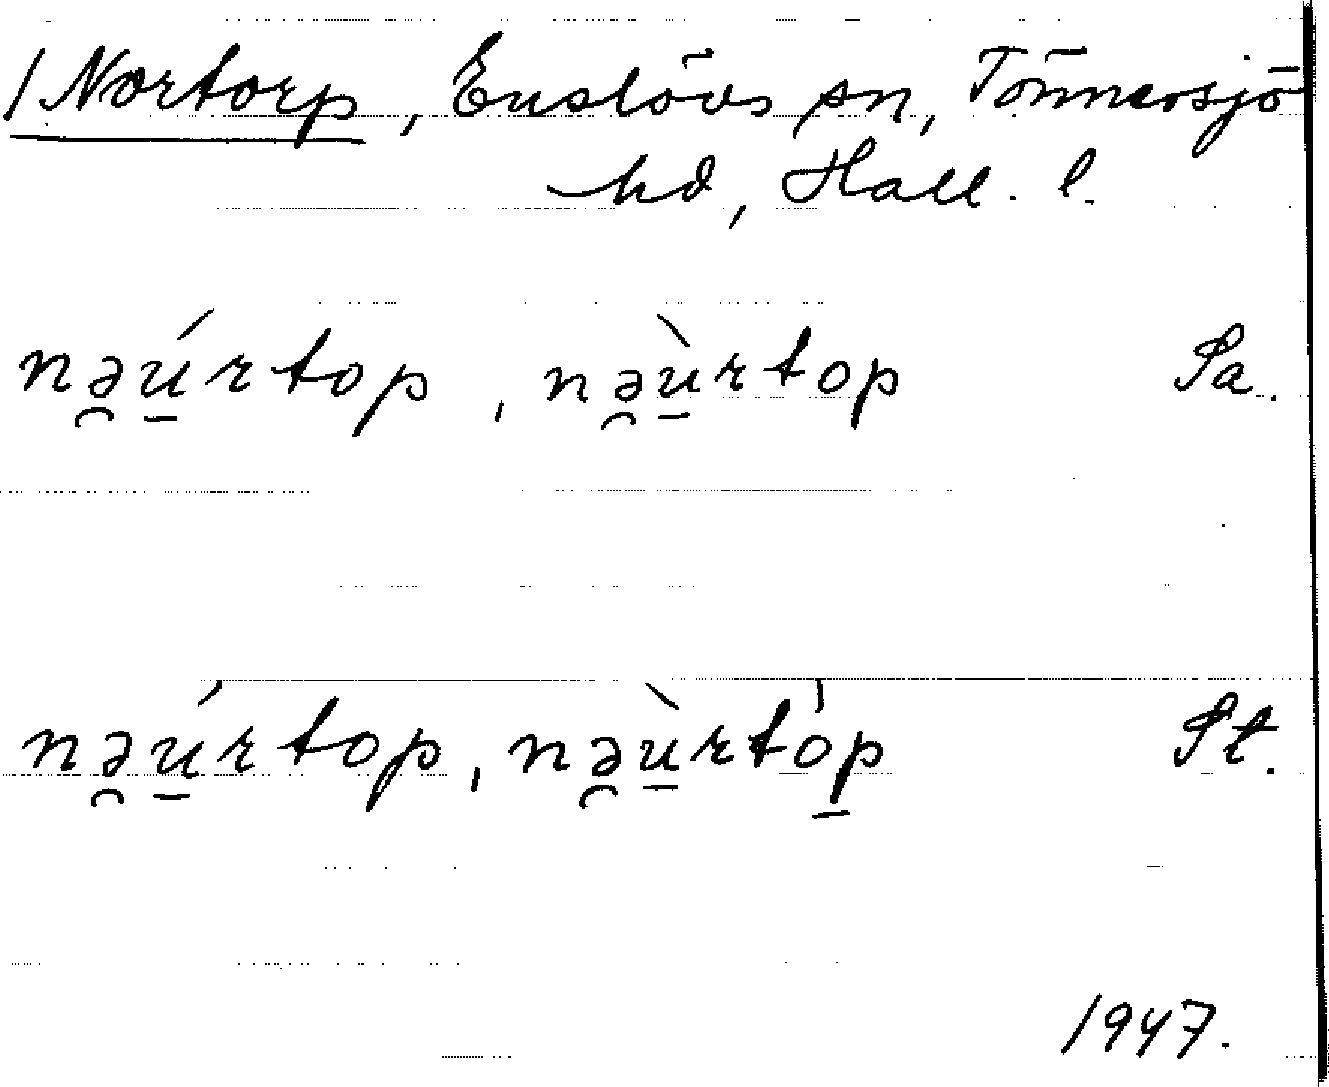 / Nortorp, Enslövs sn, Tönnersjö
hd, Hall. l.
nə̯ú̱rtop, nə̯ù̱rtop Sa.
nə̯ú̱rtop, nə̯ù̱rtòp̱ St.
1947.